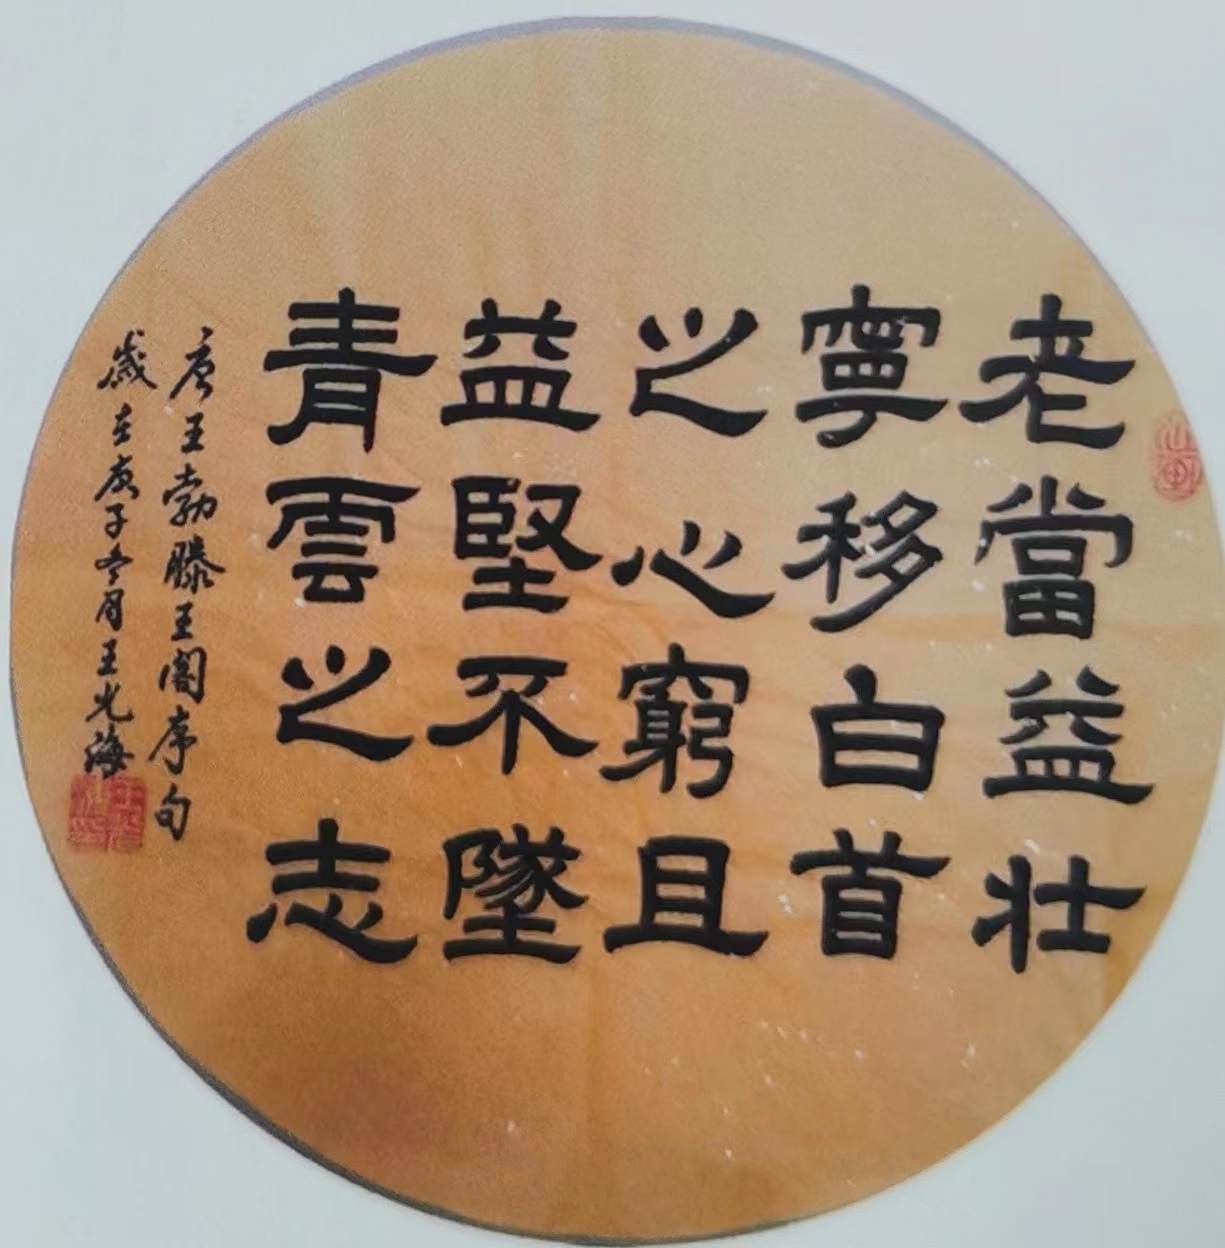 老當益壯
寧移白首
之心窮且
益堅不墜
青雲之志
唐王勃滕王閣序句
歲在庚子冬月王光海